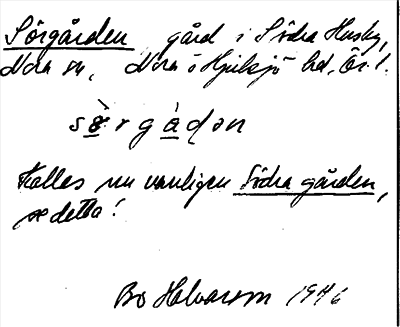 Sörgården gård i Södra Husby,
Nora sn, Nora o Hjulsjö hd, Ör. l.
sö̀rgàḍən
Kallas nu vanligen Södra gården,
se detta!
Bo Halvarson 1946